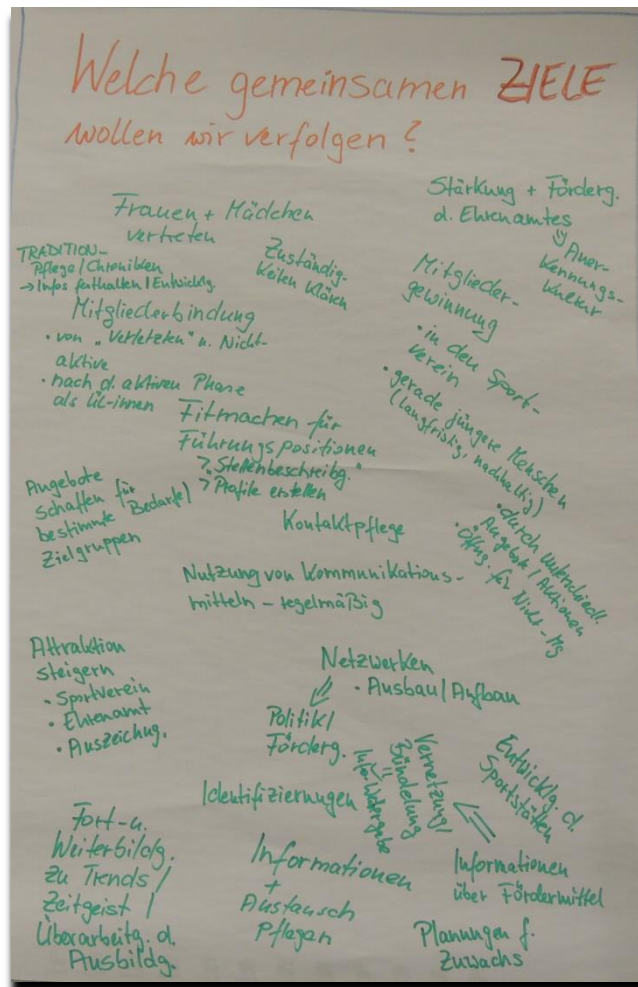 Welche gemeinsamen ZIELE
wollen wir verfolgen?
Frauen + Mädchen
vertreten
Stärkung + Förderg.
d. Ehrenamtes
Aner-
kennungs-
kultur
TRADITION-
Pflege / Chroniken
→ Infos festhalten / Entwicklg.
Zuständig-
keiten klären
Mitglieder-
gewinnung
• in den Sport-
verein
• gerade jüngere Menschen
(langfristig, nachhaltig)
• durch unterschiedl.
Angebote / Aktionen
• Öffng. für Nicht-Mg
Mitgliederbindung
• von "Verletzten" u. Nicht-
aktive
• nach d. aktiven Phase
als ÜL-innen
Fitmachen für
Führungspositionen
> "Stellenbeschreibg."
> Profile erstellen
Angebote
schaffen für
bestimmte (Bedarfe)
Zielgruppen
Kontaktpflege
Nutzung von Kommunikations-
mitteln – regelmäßig
Attraktion
steigern
• Sportverein
• Ehrenamt
• Auszeichng.
Netzwerken
• Ausbau / Aufbau
Politik /
Förderg.
Identifizierungen
Vernetzung /
Bündelung
Infor-Weitergabe
Entwicklg. d.
Sportstätten
Informationen
über Fördermittel
Fort- u.
Weiterbildg.
zu Trends /
Zeitgeist /
Überarbeitg. d.
Ausbildg.
Informationen
+
Austausch
pflegen
Planungen f.
Zuwachs